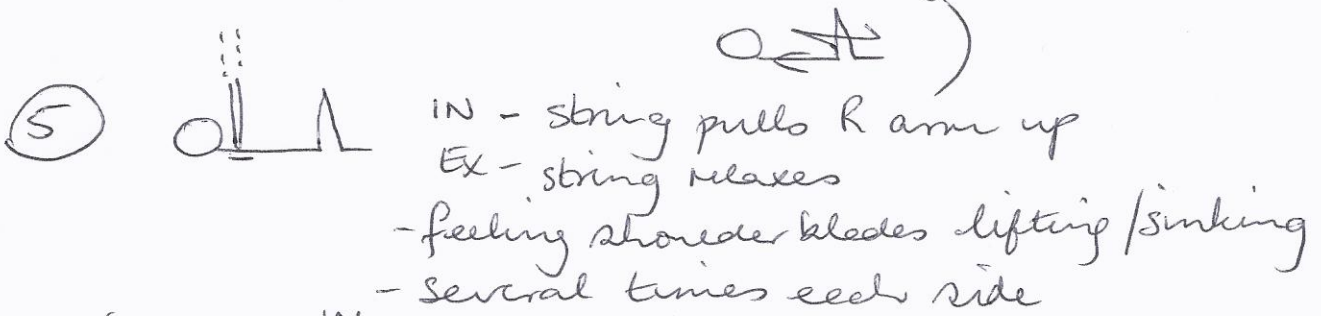 5
IN - string pulls R arm up
EX - string relaxes
- feeling shoulder blades lifting/sinking
- several times each side
IN